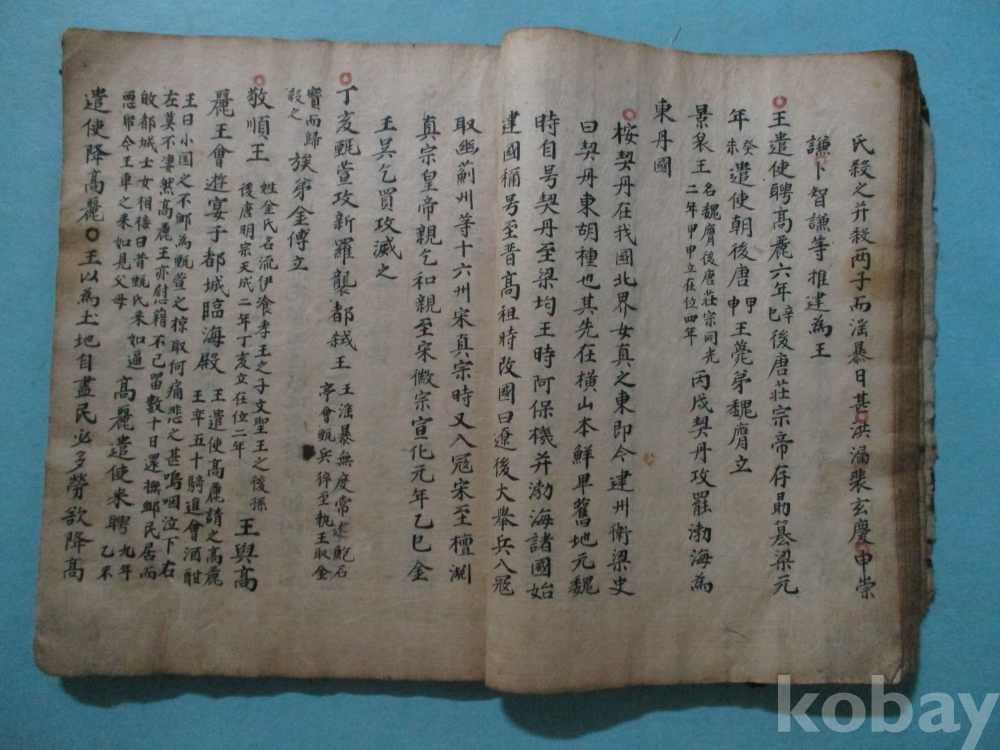 氏殺之并殺两子而滛暴日甚洪濡裴玄慶申崇
謙卜智謙等推建為王
王遣使聘髙麗六年辛巳後唐莊宗帝存勗簒梁元
年癸未遣使朝後唐甲申王薨弟魏膺立
景哀王名魏膺後唐莊宗同光二年甲申立在位四年丙戌契丹攻罷渤海為
東丹國
桉契丹在我國北界女真之東即今建州衛梁史
曰契丹東胡種也其先在橫山本鮮卑舊地元魏
時自号契丹至梁均王時阿保機并渤海諸國始
建國稱号至晋髙祖時改國曰遼後大舉兵入冦
取幽薊州等十六州宋真宗時又入冦宋至檀渕
真宗皇帝親乞和親至宋徽宗宣化元年乙巳金
王吴乞買攻滅之
丁亥甄萱攻新羅襲都弑王王滛暴無度常遊鮑石亭會甄兵猝至執王取金
寳而歸殺之族弟金傅立
敬順王姓金氏名流伊飡孝王之子文聖王之後孫後唐明宗天成二年丁亥立在位二年王與髙
麗王會遊宴于都城臨海殿王遣使髙麗請之髙麗王率五十騎進會酒酣
王曰小国之不卹為甄萱之椋取何痛悲之甚嗚咽泣下右
左莫不凄然髙麗王亦慰藉不已畱數十日還撫卹民居而
敀都城士女相接曰昔甄氏来如逼
思帰今王車之来如見父母髙麗遣使来聘九年乙未
遣使降髙麗王以為土地自盡民必多勞欲降髙
kobay